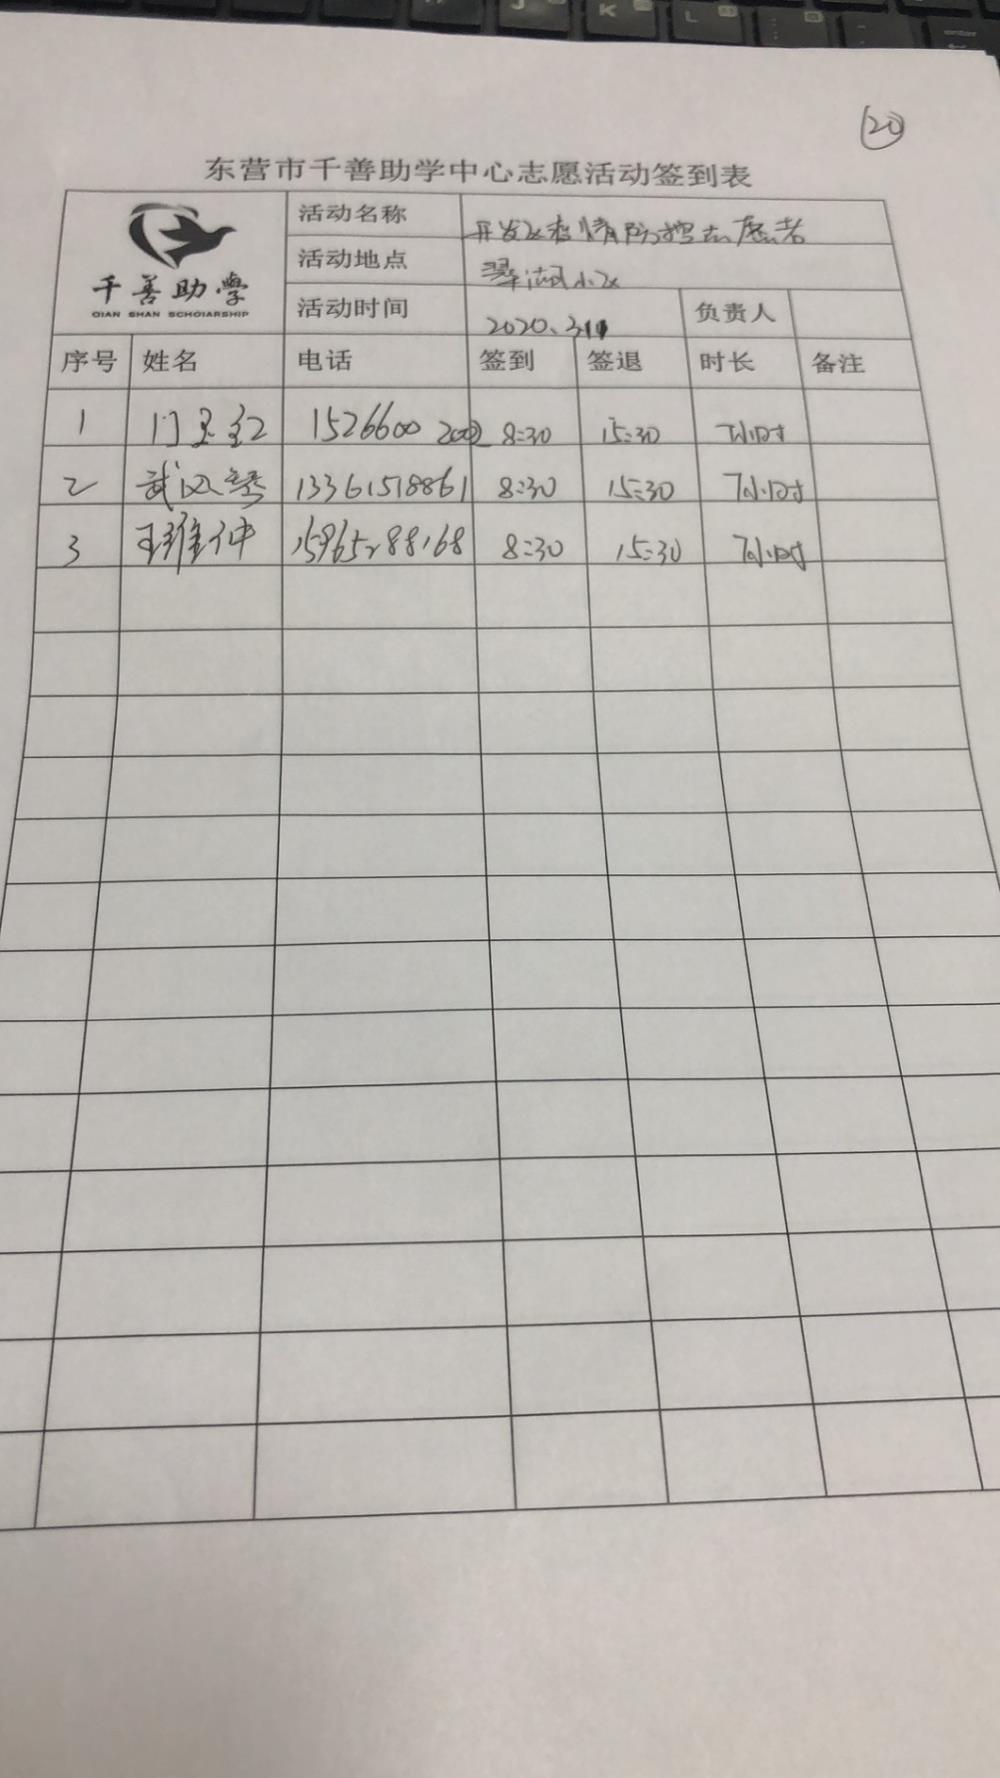 J K L
enter
20
东营市千善助学中心志愿活动签到表
千善助學
QIAN SHAN SCHOIARSHIP
活动名称 开发区疫情防控志愿者
活动地点 翠湖小区
活动时间 2020.3.11 负责人
序号 姓名 电话 签到 签退 时长 备注
1 门玉红 15266002002 8:30 15:30 7小时
2 武风琴 13361518861 8:30 15:30 7小时
3 王维仲 15965288168 8:30 15:30 7小时